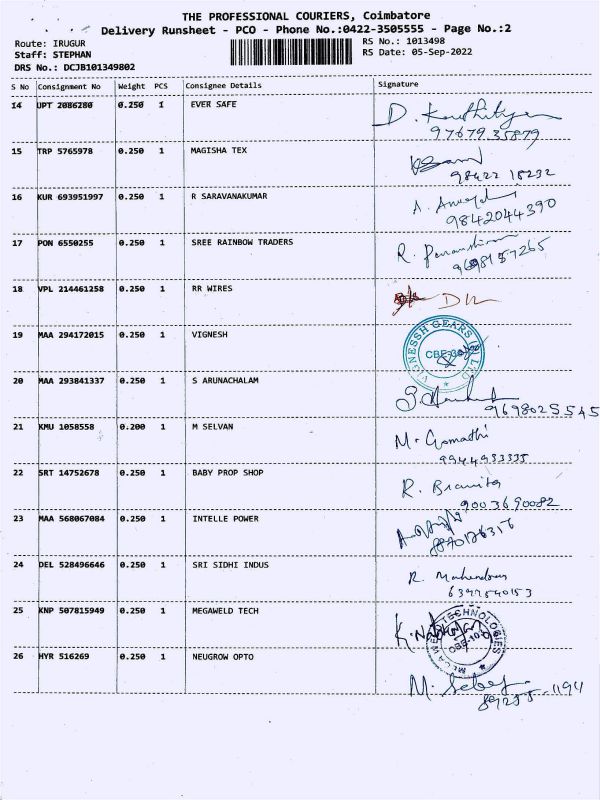 THE PROFESSIONAL COURIERS, Coimbatore
Delivery Runsheet - PCO - Phone No.:0422-3505555 - Page No.:2
Route: IRUGUR
RS No.: 1013498
Staff: STEPHAN
RS Date: 05-Sep-2022
DRS No.: DCJB101349802
S No Consignment No Weight PCS Consignee Details Signature
14 UPT 2086280 0.250 1 EVER SAFE
97679.35879
15 TRP 5765978 0.250 1 MAGISHA TEX
98422 18232
16 KUR 693951997 0.250 1 R SARAVANAKUMAR
9842044390
17 PON 6550255 0.250 1 SREE RAINBOW TRADERS
9698157265
18 VPL 214461258 0.250 1 RR WIRES
19 MAA 294172015 0.250 1 VIGNESH
VIGNESSH GEARS (P) LTD
20 MAA 293841337 0.250 1 S ARUNACHALAM
9698025545
21 KMU 1058558 0.200 1 M SELVAN
M. Gomathi
9944933335
22 SRT 14752678 0.250 1 BABY PROP SHOP
R.
9003690082
23 MAA 568067084 0.250 1 INTELLE POWER
8870126316
24 DEL 528496646 0.250 1 SRI SIDHI INDUS
R.
6397540153
25 KNP 507815949 0.250 1 MEGAWELD TECH
TECHNOLOGIES
26 HYR 516269 0.250 1 NEUGROW OPTO
M.